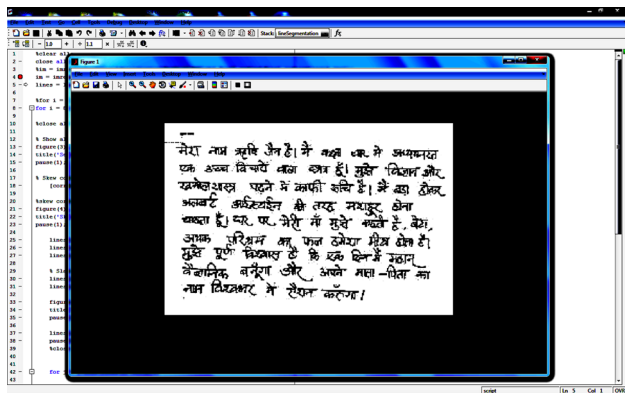 File Edit Text Go Cell Tools Debug Desktop Window Help
Stack: lineSegmentation
- 1.0 + ÷ 1.1 ×
1 %clear all
2 close all
3 %im = imr
4 im = imre
5 lines =
7 %for i =
8 for i =
10 %close al
12 % Show al
13 figure(3)
14 title('Se
15 pause(1);
17 % Skew co
18 [corr
20 %skew cor
21 figure(4)
22 title('Sk
23 pause(1);
25 lines
26 lines
27 lines
29 % Sla
30 lines
31 lines
33 figur
34 title
35 pause
37 lines
38 pause
39 %clos
42 for
43
Figure 1
File Edit View Insert Tools Desktop Window Help
मेरा नाम ऋषि जैन है। मैं कक्षा चार में अध्यनरत
एक उच्च विचारों वाला छात्र हूँ। मुझे विज्ञान और
खगोलशास्त्र पढ़ने में काफी रुचि है। मैं बड़ा होकर
अलबर्ट आईंस्टाईन की तरह मशहूर होना
चाहता हूँ। घर पर मेरी माँ मुझे कहती है, बेटा,
अथक परिश्रम का फल हमेशा मीठा होता है।
मुझे पूर्ण विश्वास है कि एक दिन मैं महान
वैज्ञानिक बनूँगा और अपने माता-पिता का
नाम विश्वभर में रौशन करूँगा!
script Ln 5 Col 1 OVR